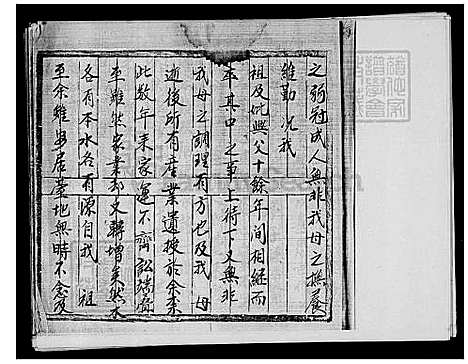 之弱冠成人無非我母之撫養
維勤况我
祖及妣與父十餘年間相継而
卒其中之事上待下又無非
我母之調理有方也及我 母
逝後所有産業遺授於余奈
此数年来家運不齊訟端
至雖然家業却又轉增矣然木
各有本水各有源自我 祖
至余雖安居塋地無時不念及